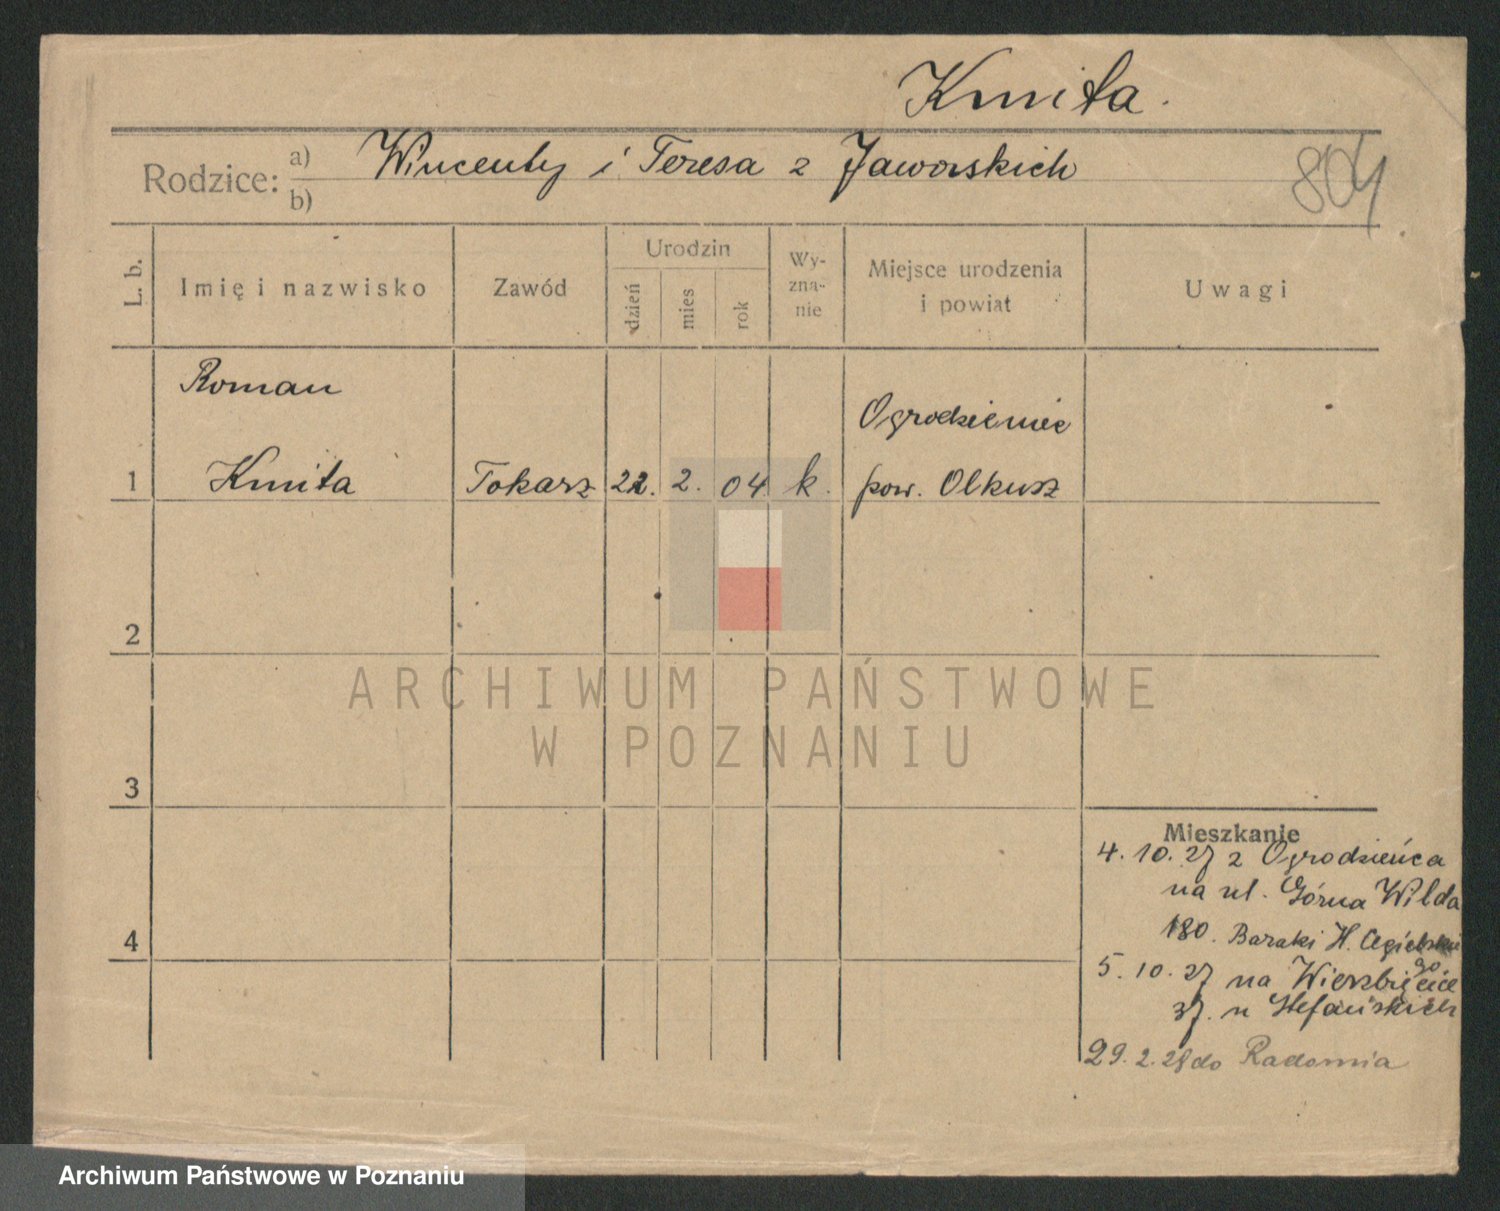 Kmita.
Rodzice: a) Wincenty i Teresa z Jaworskich
b)
804
L. b.
Imię i nazwisko
Zawód
Urodzin
dzień
mies
rok
Wy-
zna-
nie
Miejsce urodzenia
i powiat
Uwagi
Roman
Ogrodzieniec
1 Kmita Tokarz 22. 2. 04 k. pow. Olkusz
2
3
4
ARCHIWUM PAŃSTWOWE
W POZNANIU
Mieszkanie
4. 10. 27 z Ogrodzieńca
na ul. Górna Wilda
180. Baraki H. Cegielskiego
5. 10. 27 na Wierzbięcice
37. u Stefańskich
29. 2. 28 do Radomia
Archiwum Państwowe w Poznaniu